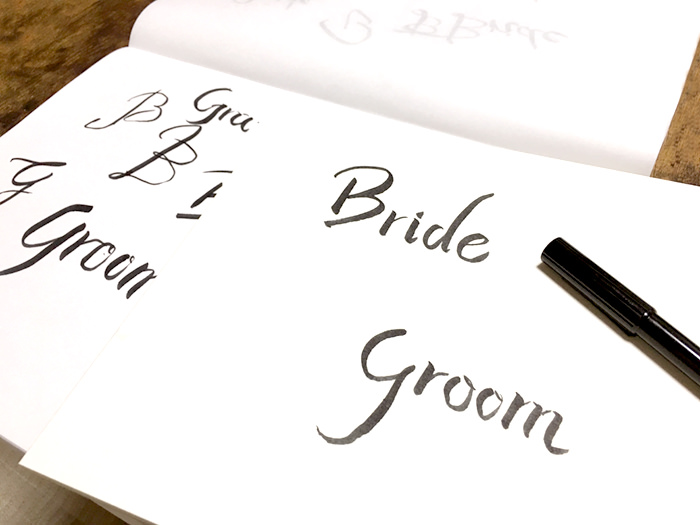 Bride
B Gra
B
G
Groom
Bride
Groom